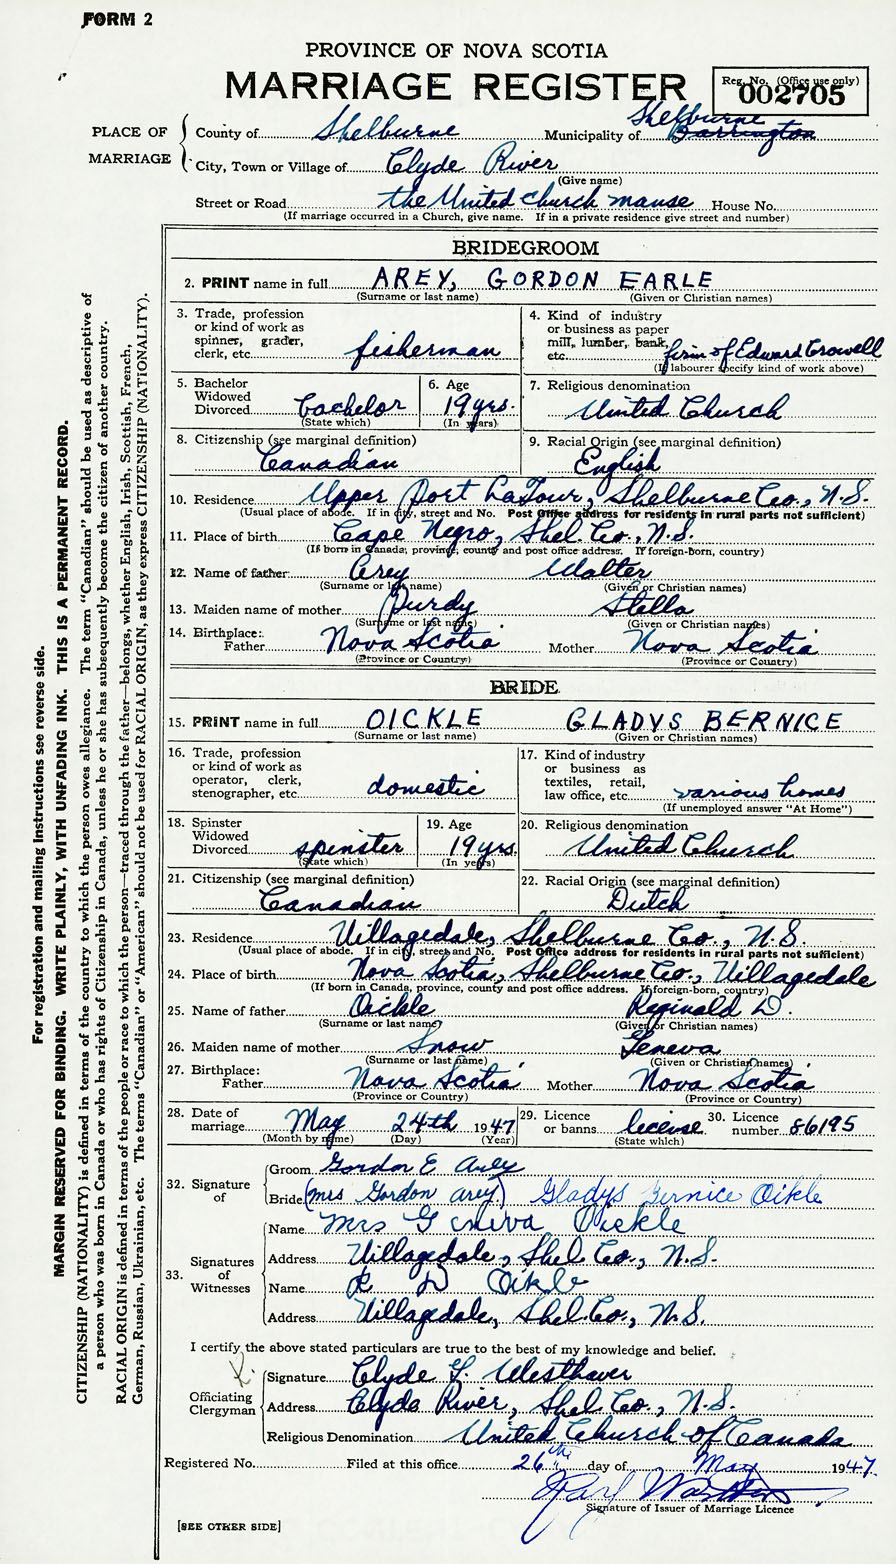 FORM 2
PROVINCE OF NOVA SCOTIA
MARRIAGE REGISTER
Reg. No. (Office use only)
002705
PLACE OF MARRIAGE
County of Shelburne Municipality of Shelburne Barrington
City, Town or Village of Clyde River
(Give name)
Street or Road the United Church manse House No.
(If marriage occurred in a Church, give name. If in a private residence give street and number)
BRIDEGROOM
2. PRINT name in full AREY, GORDON EARLE
(Surname or last name) (Given or Christian names)
3. Trade, profession or kind of work as spinner, grader, clerk, etc. fisherman
4. Kind of industry or business as paper mill, lumber, bank, etc. firm of Edward Crowell
(If labourer specify kind of work above)
5. Bachelor Widowed Divorced bachelor
(State which)
6. Age 19 yrs.
(In years)
7. Religious denomination United Church
8. Citizenship (see marginal definition) Canadian
9. Racial Origin (see marginal definition) English
10. Residence Upper Port LaTour, Shelburne Co., N.S.
(Usual place of abode. If in city, street and No. Post Office address for residents in rural parts not sufficient)
11. Place of birth Cape Negro, Shel. Co., N.S.
(If born in Canada, province, county and post office address. If foreign-born, country)
12. Name of father Arey Walter
(Surname or last name) (Given or Christian names)
13. Maiden name of mother Purdy Stella
(Surname or last name) (Given or Christian names)
14. Birthplace: Father Nova Scotia Mother Nova Scotia
(Province or Country) (Province or Country)
BRIDE
15. PRINT name in full OICKLE GLADYS BERNICE
(Surname or last name) (Given or Christian names)
16. Trade, profession or kind of work as operator, clerk, stenographer, etc. domestic
17. Kind of industry or business as textiles, retail, law office, etc. various homes
(If unemployed answer "At Home")
18. Spinster Widowed Divorced spinster
(State which)
19. Age 19 yrs.
(In years)
20. Religious denomination United Church
21. Citizenship (see marginal definition) Canadian
22. Racial Origin (see marginal definition) Dutch
23. Residence Villagedale, Shelburne Co., N.S.
(Usual place of abode. If in city, street and No. Post Office address for residents in rural parts not sufficient)
24. Place of birth Nova Scotia, Shelburne Co., Villagedale
(If born in Canada, province, county and post office address. If foreign-born, country)
25. Name of father Oickle Reginald D.
(Surname or last name) (Given or Christian names)
26. Maiden name of mother Snow Geneva
(Surname or last name) (Given or Christian names)
27. Birthplace: Father Nova Scotia Mother Nova Scotia
(Province or Country) (Province or Country)
28. Date of marriage May 24th 1947
(Month by name) (Day) (Year)
29. Licence or banns license
(State which)
30. Licence number 86195
32. Signature of
Groom Gordon E Arey
Bride (Mrs Gordon Arey) Gladys Bernice Oikle
33. Signatures of Witnesses
Name Mrs Geneva Oickle
Address Villagedale, Shel. Co., N.S.
Name R D Oikle
Address Villagedale, Shel. Co., N.S.
I certify the above stated particulars are true to the best of my knowledge and belief.
Officiating Clergyman
Signature Clyde F. Westhaver
Address Clyde River, Shel. Co., N.S.
Religious Denomination United Church of Canada
Registered No. Filed at this office 26th day of May 1947.
Signature of Issuer of Marriage Licence
[SEE OTHER SIDE]
For registration and mailing instructions see reverse side.
MARGIN RESERVED FOR BINDING. WRITE PLAINLY, WITH UNFADING INK. THIS IS A PERMANENT RECORD.
CITIZENSHIP (NATIONALITY) is defined in terms of the country to which the person owes allegiance. The term "Canadian" should be used as descriptive of
a person who was born in Canada or who has rights of Citizenship in Canada, unless he or she has subsequently become the citizen of another country.
RACIAL ORIGIN is defined in terms of the people or race to which the person—traced through the father—belongs, whether English, Irish, Scottish, French,
German, Russian, Ukrainian, etc. The terms "Canadian" or "American" should not be used for RACIAL ORIGIN, as they express CITIZENSHIP (NATIONALITY).